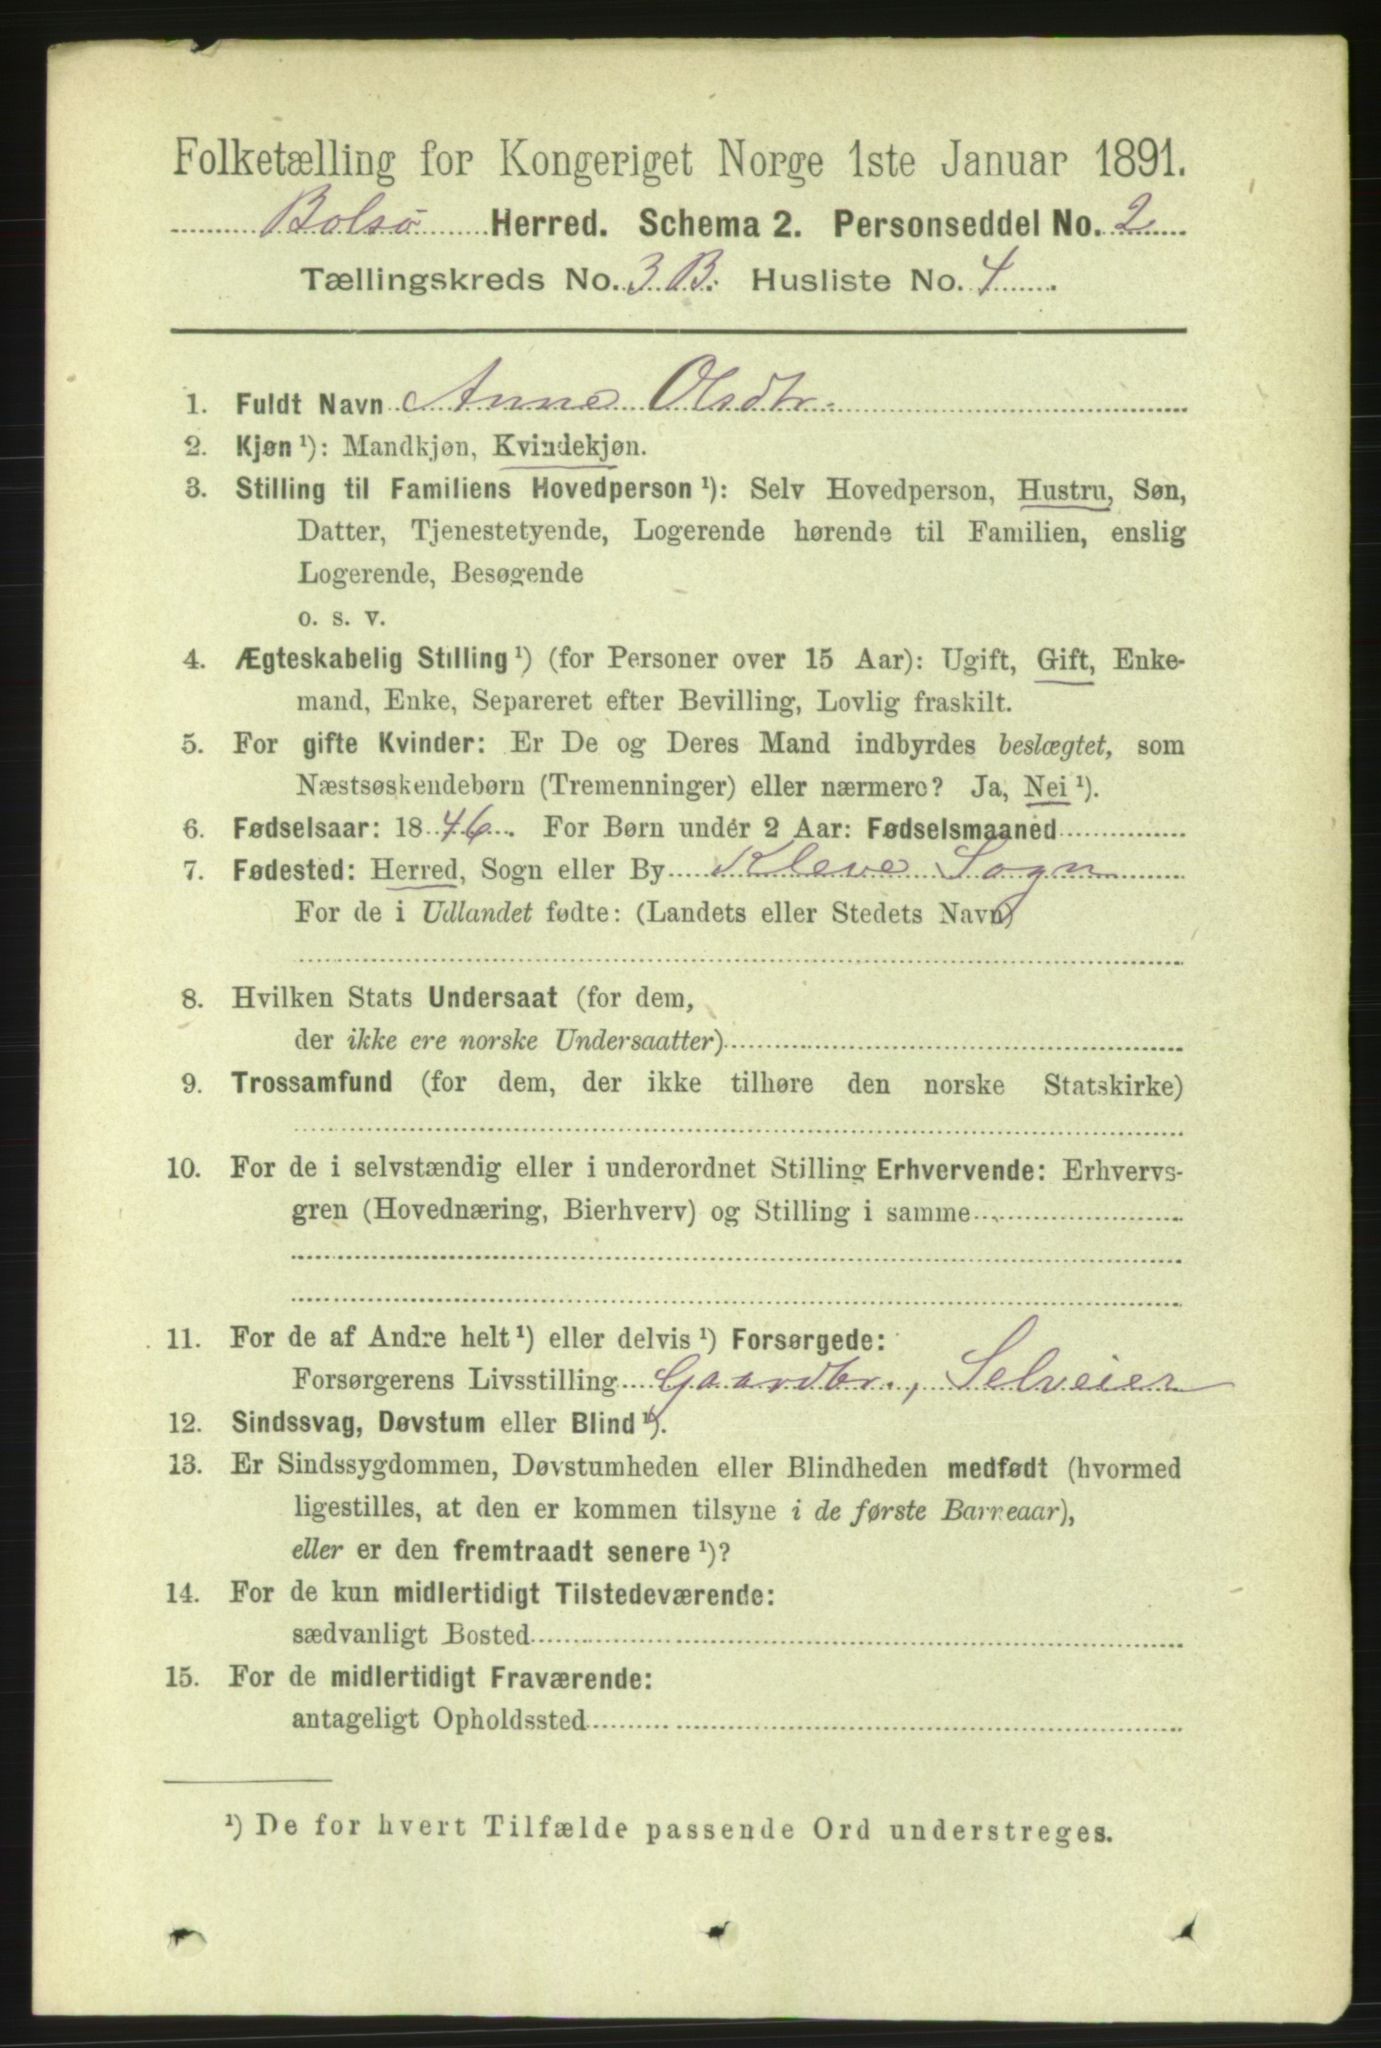 Folketælling for Kongeriget Norge 1ste Januar 1891.
Bolsø Herred. Schema 2. Personseddel No. 2
Tællingskreds No. 3 B. Husliste No. 4
1. Fuldt Navn Anne Olsdtr.
2. Kjøn ¹): Mandkjøn, Kvindekjøn.
3. Stilling til Familiens Hovedperson ¹): Selv Hovedperson, Hustru, Søn,
Datter, Tjenestetyende, Logerende hørende til Familien, enslig
Logerende, Besøgende
o. s. v.
4. Ægteskabelig Stilling ¹) (for Personer over 15 Aar): Ugift, Gift, Enke-
mand, Enke, Separeret efter Bevilling, Lovlig fraskilt.
5. For gifte Kvinder: Er De og Deres Mand indbyrdes beslægtet, som
Næstsøskendebørn (Tremenninger) eller nærmere? Ja, Nei ¹).
6. Fødselsaar: 1846. For Børn under 2 Aar: Fødselsmaaned
7. Fødested: Herred, Sogn eller By Kleve Sogn
For de i Udlandet fødte: (Landets eller Stedets Navn)
8. Hvilken Stats Undersaat (for dem,
der ikke ere norske Undersaatter)
9. Trossamfund (for dem, der ikke tilhøre den norske Statskirke)
10. For de i selvstændig eller i underordnet Stilling Erhvervende: Erhvervs-
gren (Hovednæring, Bierhverv) og Stilling i samme
11. For de af Andre helt ¹) eller delvis ¹) Forsørgede:
Forsørgerens Livsstilling Gaardbr., Selveier
12. Sindssvag, Døvstum eller Blind ¹).
13. Er Sindssygdommen, Døvstumheden eller Blindheden medfødt (hvormed
ligestilles, at den er kommen tilsyne i de første Barneaar),
eller er den fremtraadt senere ¹)?
14. For de kun midlertidigt Tilstedeværende:
sædvanligt Bosted
15. For de midlertidigt Fraværende:
antageligt Opholdssted
¹) De for hvert Tilfælde passende Ord understreges.